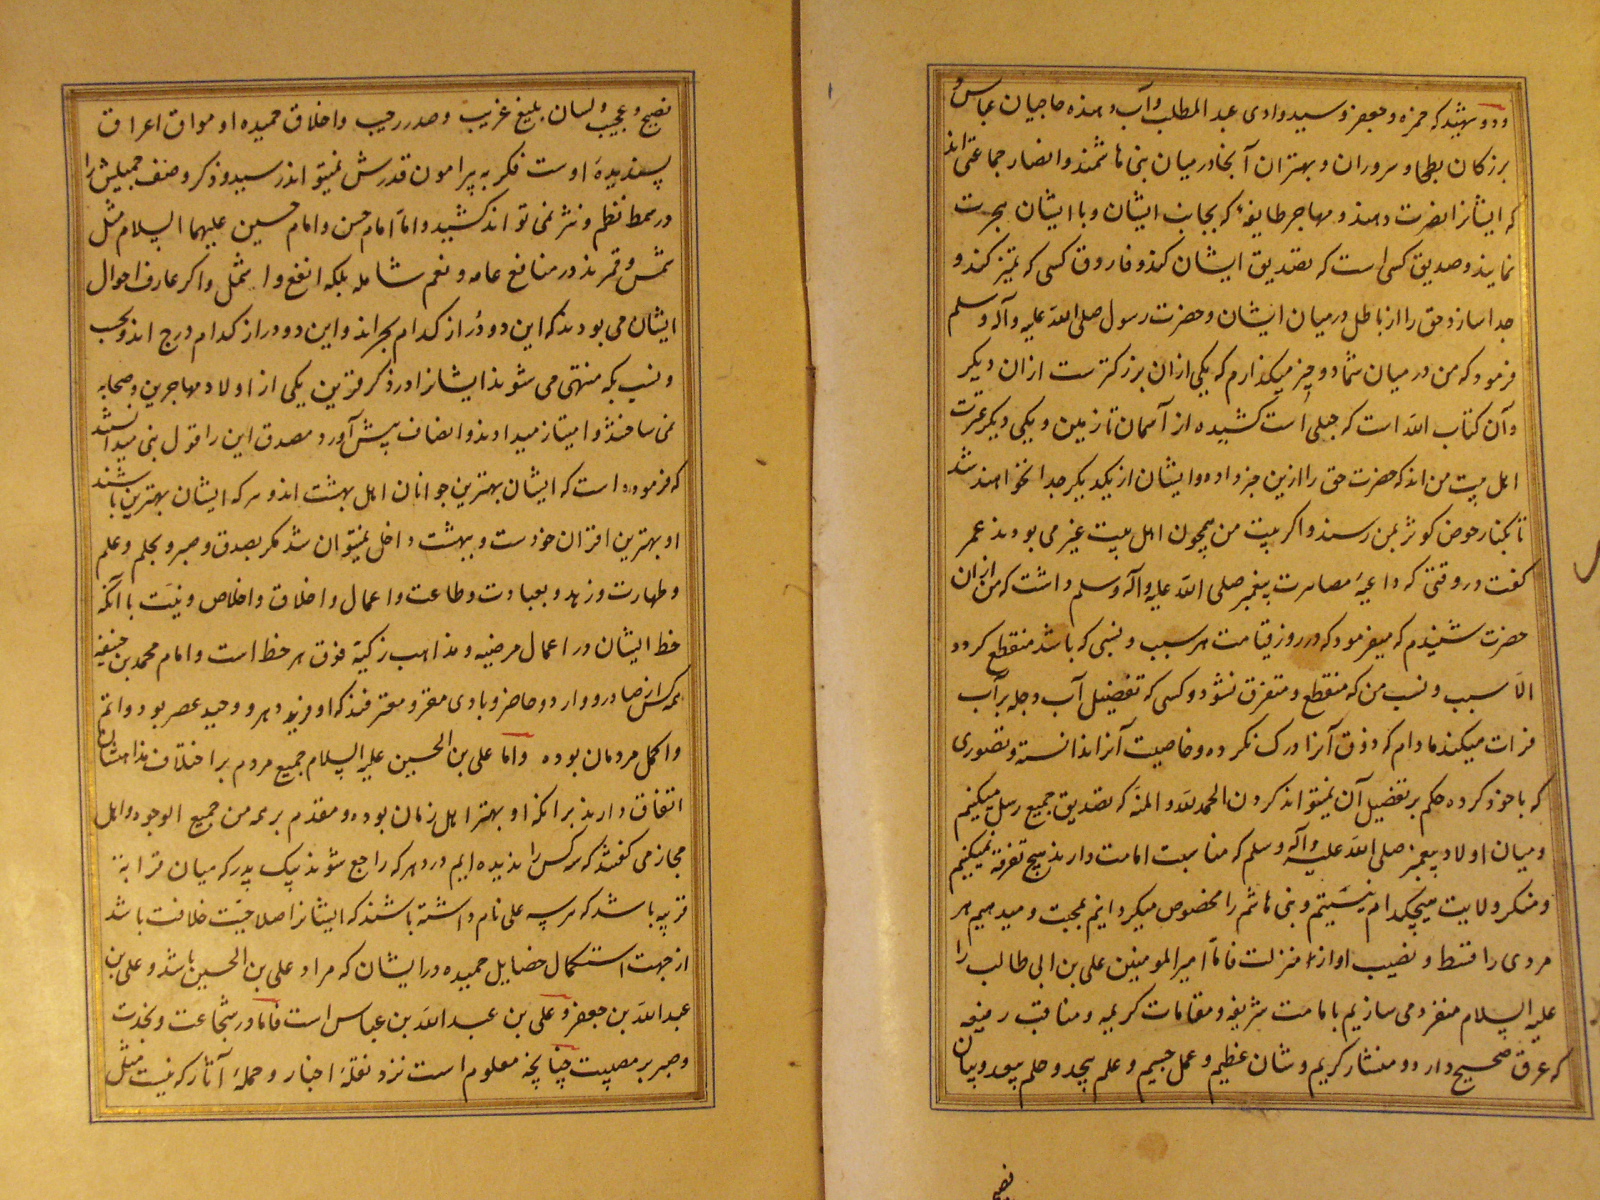 و دو شهید که حمزه و جعفر و سید وادی عبد المطلب و آب دهنده حاجیان عباس و
بزرکان بطحا و سروران و بهتران آنجا در میان بنی هاشمند و انصار جماعتی اند
که ایشانرا نصرت دهند و مهاجر طایفهٔ که بجانب ایشان و با ایشان هجرت
نمایند و صدیق کسی است که تصدیق ایشان کند و فاروق کسی که تمیز کند و
جدا سازد حق را از باطل در میان ایشان و حضرت رسول صلی الله علیه و آله وسلم
فرمود که من در میان شما دو چیز میکذارم که یکی از ان بزرکترست از ان دیکر
و آن کتاب الله است که حبلی است کشیده از آسمان تا زمین و یکی دیکر عترت
اهل بیت من اند که حضرت حق را ازین خبر داده و ایشان از یکدیکر جدا نخواهند شد
تا بکنار حوض کوثر بمن رسند و اکر بیت من همچون اهل بیت غیر می بودند عمر
کفت در وقتی که داعیهٔ مصاهرت پیغمبر صلی الله علیه وآله وسلم داشت که من از ان
حضرت شنیدم که میفرمود که در روز قیامت هر سبب و نسبی که باشد منقطع کردد
الا سبب و نسب من که منقطع و متفرق نشود و کسی که تفضیل آب دجله بر آب
فرات میکند مادام که ذوق آنرا درک نکرده و خاصیت آنرا ندانسته و تصوری
که با خود کرده حکم بر تفضیل آن نمیتواند کردن الحمد لله و المنه که تصدیق جمیع رسل میکنیم
و میان اولاد پیغمبر صلی الله علیه وآله وسلم که مناسبت امامت دارند هیچ تفرقه نمیکنیم
و منکر ولایت هیچکدام نیستیم و بنی هاشم را مخصوص میکردانیم بمحبت و میدهیم هر
مردی را قسط و نصیب او از منزلت فاما امیر المومنین علی بن ابی طالب را
علیه السلام منفرد می سازیم بامامت شریفه و مقامات کریمه و مناقب رفیعه
که عرق صحیح دارد و منشار کریم و شان عظیم و عمل جسیم و علم بیحد و حلم بیعد و بیان
فصیح و عجیب و لسان بلیغ غریب و صدر رحیب و اخلاق حمیده او موافق اعراق
پسندیدهٔ اوست فکر به پیرامون قدرش نمیتواند رسید و ذکر وصف جمیلش را
در سمط نظم و نثر نمی تواند کشید و اما امام حسن و امام حسین علیهما السلام مثل
شمس و قمرند در منافع عامه و نعم شامله بلکه انفع و اشمل و اکر عارف احوال
ایشان می بودند که این دو دُر از کدام بحراند و این دو در از کدام درج اند و بحسب
و نسب که منتهی می شوند ایشانرا در ذکر قرین یکی از اولاد مهاجرین و صحابه
نمی ساختند و امتیاز میدادند و انصاف پیش آورد مصدق این را قول نبی میدانستند
که فرموده است که ایشان بهترین جوانان اهل بهشت اند و هر که ایشان بهترین باشند
او بهترین اقران خودست و ببهشت داخل نمیتوان شد مکر بصدق و صبر و بحلم و علم
و طهارت و زهد و بعبادت و طاعت و اعمال و اخلاق و اخلاص و نیت با آنکه
حظ ایشان در اعمال مرضیه و مذاهب زکیه فوق هر حظ است و امام محمد بن حنفیه
همه کس از صادر و وارد و حاضر و بادی مقر و معترفند که او فرید دهر و وحید عصر بود و اتم
و اکمل مردمان بوده و اما علی بن الحسین علیه السلام جمیع مردم بر اختلاف مذاهبشان
اتفاق دارند بر انکه او بهتر اهل زمان بوده و مقدم بر همه من جمیع الوجوه و اهل
حجاز می کفتند که سه کس را ندیده ایم در دهر که راجع شوند بیک پدر که میان قرابه
قریبه باشد که هر سه علی نام داشته باشند که ایشانرا صلاحیت خلافت باشد
از جهت استکمال خصایل حمیده در ایشان که مراد علی بن الحسین باشد و علی بن
عبد الله بن جعفر و علی بن عبد الله بن عباس است فاما در شجاعت و نجدت
و صبر بر مصیبت چنانچه معلوم است نزد نقلهٔ اخبار و حملهٔ آثار که نیست مثل
فصیح